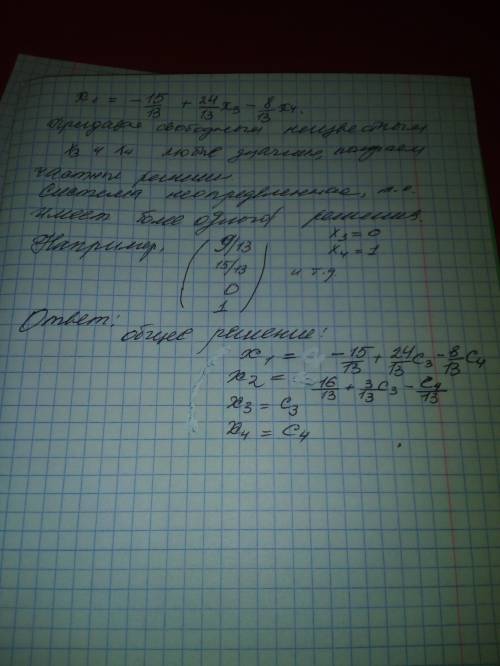 x₁ = -15/13 + 24/13 x₃ - 8/13 x₄.
Придавая свободным неизвестным
x₃ и x₄ любые значения, получаем
частные решения
Система неопределенная, т.е.
имеет более одного решения.
Например, (9/13 15/13 0 1) x₃ = 0 x₄ = 1 и т.д
Ответ:
общее решение:
x₁ = -15/13 + 24/13 c₃ - 8/13 c₄
x₂ = -16/13 + 3/13 c₃ - c₄/13
x₃ = c₃
x₄ = c₄